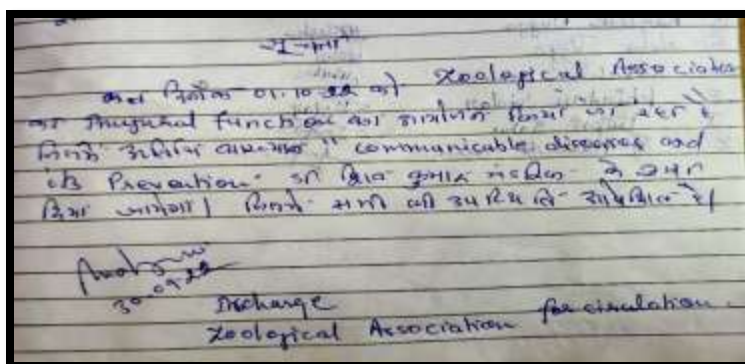 सूचना
कल दिनांक 01.10.22 को Zoological Association
का Inaugural function का आयोजन किया जा रहा है
जिसमें अतिथि व्याख्यान "communicable diseases and
its Prevention" डॉ शिव कुमार के द्वारा
दिया जायेगा। जिसमें सभी की उपस्थिति अपेक्षित है।
30.09.22
Incharge
Zoological Association for circulation.